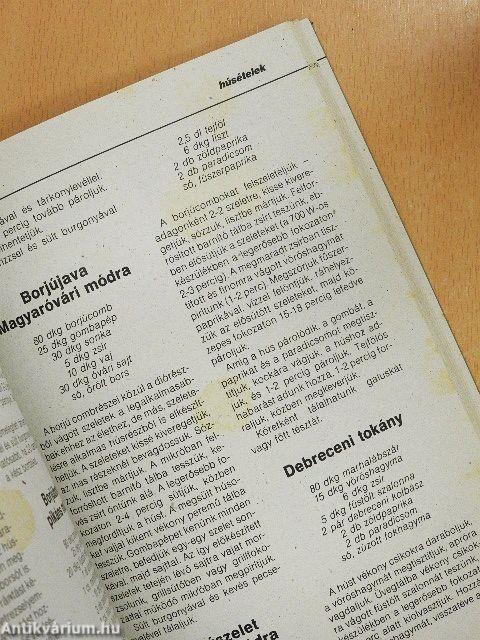 húsételek
ával és tárkonylevéllel.
percig tovább pároljuk.
nhentetjük.
nzzsel és sült burgonyával
Borjújava
Magyaróvári módra
80 dkg borjúcomb
25 dkg gombapép
30 dkg sonka
5 dkg zsír
10 dkg vaj
30 dkg óvári sajt
só, őrölt bors
A borjú combrészei közül a diórész-
ből vágott szeletek a legalkalmasab-
bak ehhez az ételhez, de más, szelete-
lésre alkalmas húsrészből is elkészít-
hetjük. A szeleteket kissé kiveregetjük,
az inas részeknél bevagdossuk. Sóz-
zuk, lisztbe mártjuk. A mikróban fel-
forrósított barnító tálba tesszük, ke-
vés zsírt öntünk alá. A legerősebb fo-
kozaton 2-4 percig sütjük, közben
megfordítjuk a húst. A megsült húso-
kat vajjal kikent vékony peremű tálba
tesszük. Gombapépet kenünk minden
szeletre, befedjük egy-egy szelet son-
kával, majd sajttal. Az így előkészített
szeletek tetején lévő sajtra vajat mor-
zsolunk, grillsütőben vagy grillfokor-
zattal működő mikróban megpirítjuk.
Sült burgonyával és kevés pecse-
nyelével tálaljuk.
2,5 dl tejföl
6 dkg liszt
2 db zöldpaprika
2 db paradicsom
só, fűszerpaprika
A borjúcombokat felszeleteljük
adagonként 2-2 szeletre, kissé kivere-
getjük, sózzuk, lisztbe mártjuk. Felfor-
rósított barnító tálba zsírt teszünk, eb-
ben elősütjük a szeleteket (a 700 W-os
készülékben a legerősebb fokozaton
2-3 percig). A megmaradt zsírban tisz-
tított és finomra vágott vöröshagymát
pirítunk (1-2 perc). Megszórjuk fűszer-
paprikával, vízzel felöntjük, ráhelyez-
zük az elősütött szeleteket, majd kö-
zepes fokozaton 15-18 percig lefedve
pároljuk.
Amíg a hús párolódik, a gombát, a
paprikát és a paradicsomot megtisz-
títjuk, kockára vágjuk, a húshoz ad-
juk, és 1-2 percig pároljuk. Tejfölös
habarást adunk hozzá, 1-2 percig for-
raljuk, közben megkeverjük.
Köretként tálalhatunk galuskát
vagy főtt tésztát.
Debreceni tokány
80 dkg marhalábszár
15 dkg vöröshagyma
6 dkg zsír
5 dkg füstölt szalonna
2 pár debreceni kolbász
2 db zöldpaprika
2 db paradicsom
só, zúzott fokhagyma
A húst vékony csíkokra daraboljuk,
a vöröshagymát megtisztítjuk, apróra
vagdaljuk. Üvegtálba vékony csíkok-
ra vágott füstölt szalonnát teszünk,
Antikvárium.hu